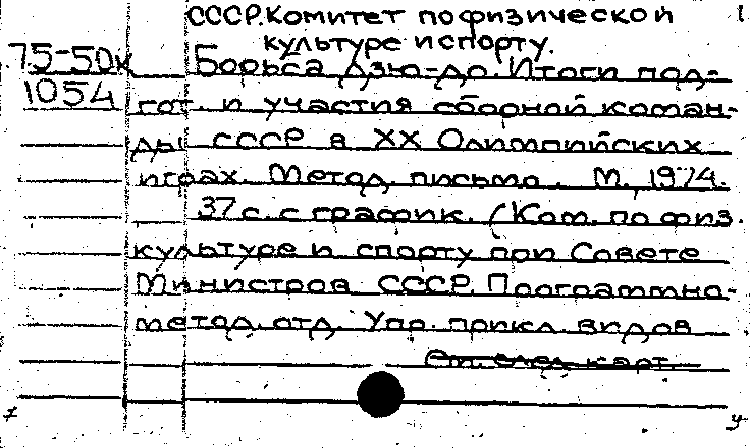 СССР. Комитет по физической
культуре и спорту.
75-50к Борьба дзю-до. Итоги под-
1054 гот. и участия сборной коман-
ды СССР в XX Олимпийских
играх. Метод. письмо. М., 1974.
37 с. с график. (Ком. по физ.
культуре и спорту при Совете
Министров СССР. Программно-
метод. отд. Упр. прикл. видов
См. след. карт.